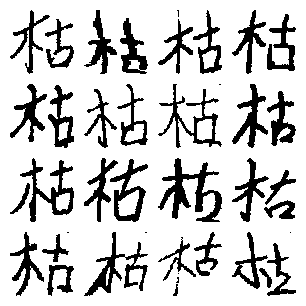 枯枯枯枯
枯枯枯枯
枯枯枯枯
枯枯枯枯